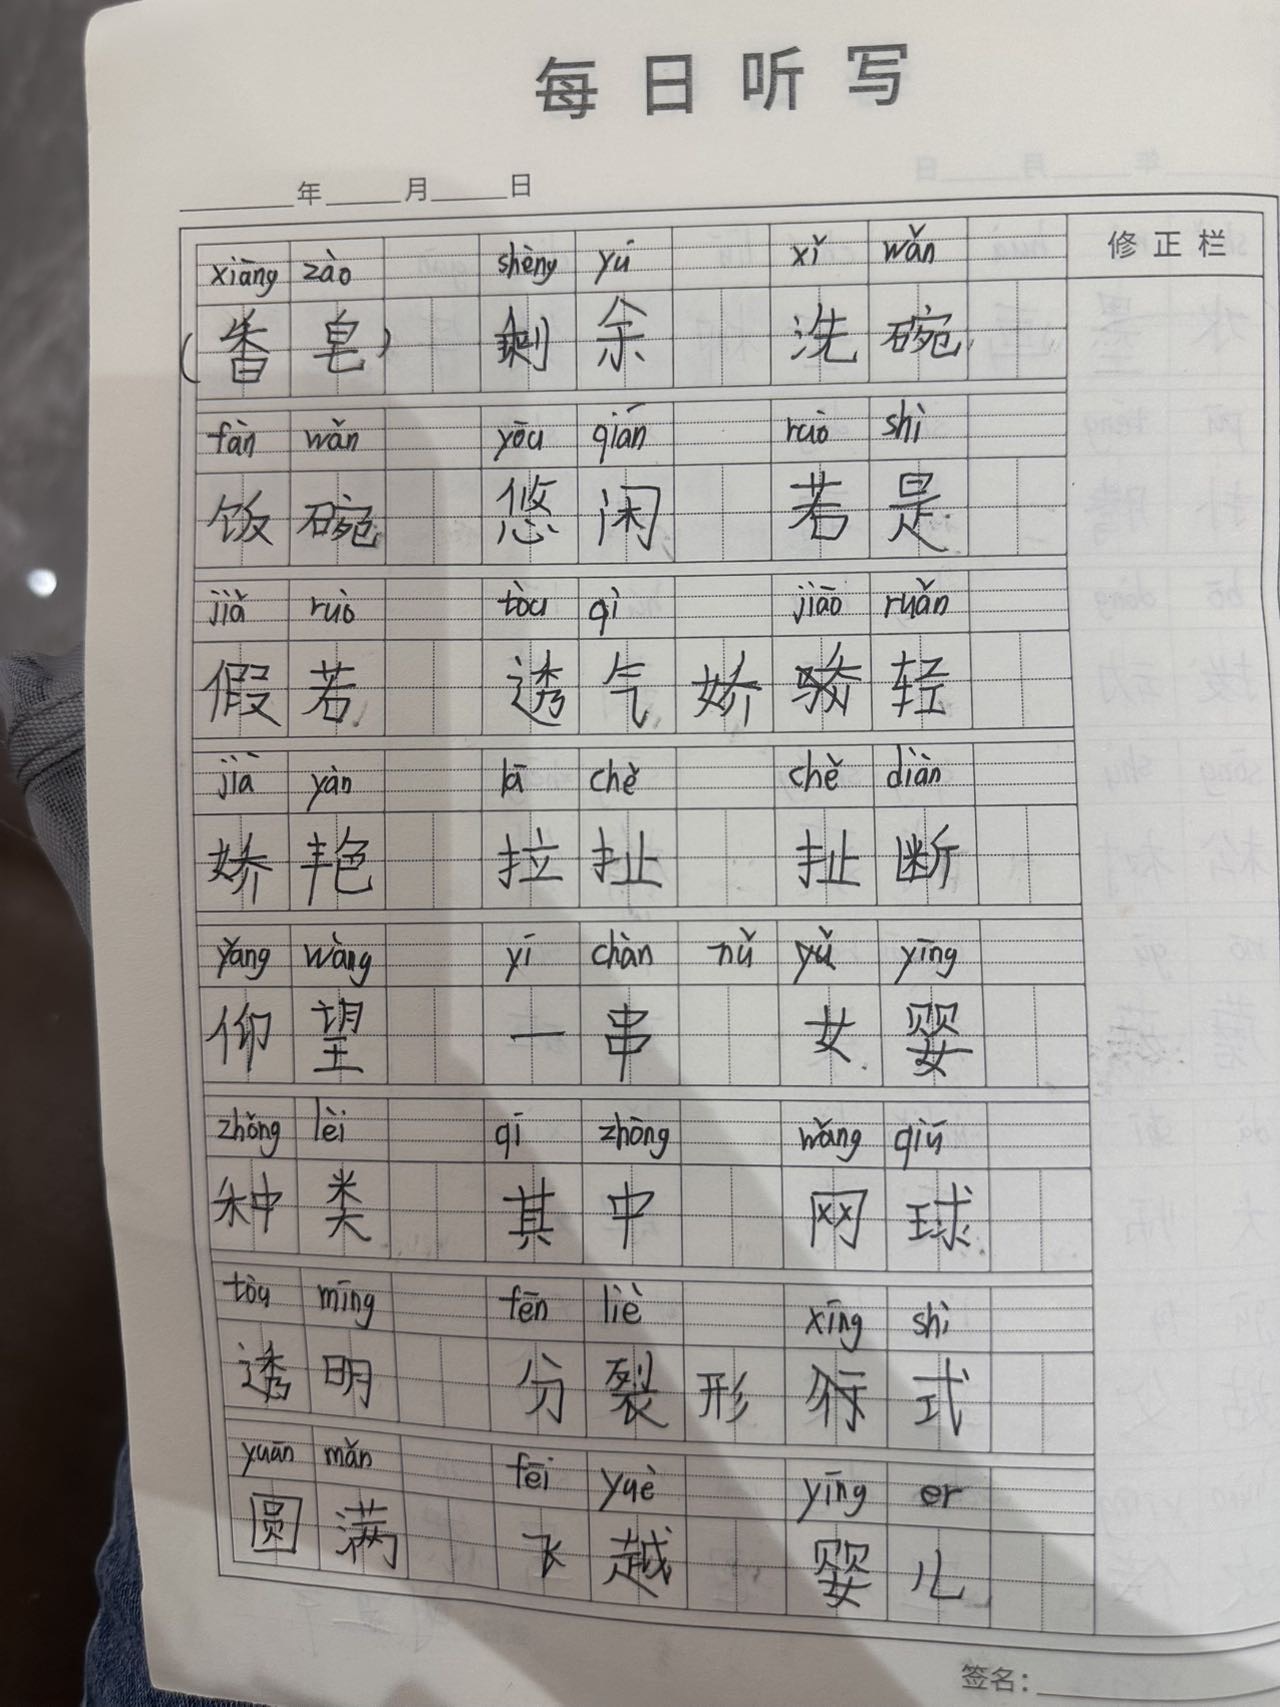 每日听写
年 月 日
xiāng zào shèng yú xǐ wǎn 修正栏
(香皂) 剩余 洗碗
fàn wǎn yōu qián ruò shì
饭碗 悠闲 若是
jiǎ ruò tòu qì jiāo ruǎn
假若 透气 娇 轻
jià yàn lā chě chě diàn
娇艳 拉扯 扯断
yǎng wàng yī chàn nǚ yīng
仰望 一串 女婴
zhǒng lèi qí zhōng wǎng qiú
种类 其中 网球
tòu míng fēn liè xíng shì
透明 分裂 形 式
yuān mǎn fēi yuè yīng er
圆满 飞越 婴儿
签名: